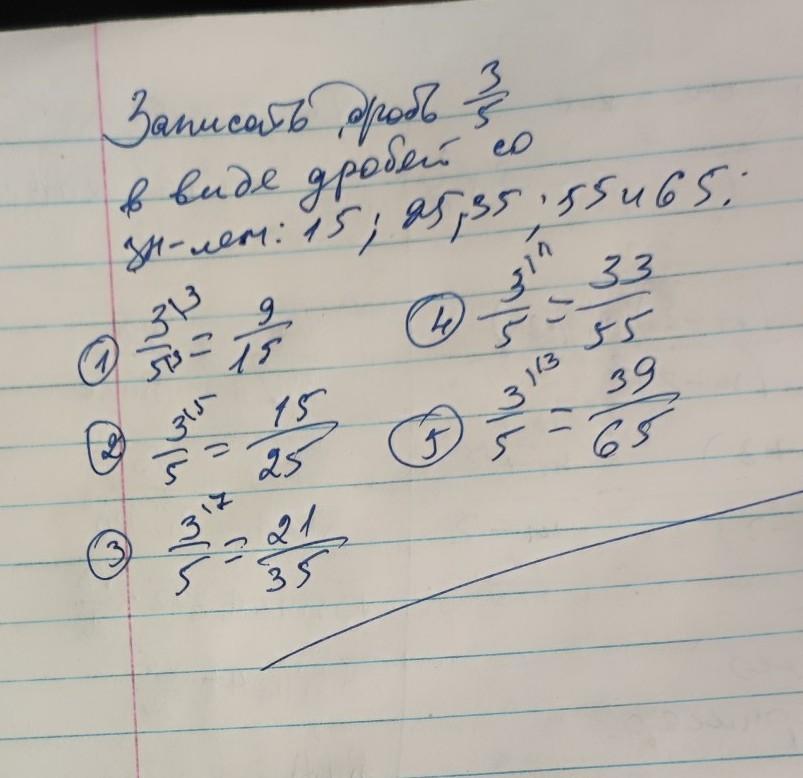 Записать дробь 3/5
в виде дробей со
зн-лем: 15; 25, 35; 55 и 65:
① 3\3/5\3 = 9/15
② 3\5/5 = 15/25
③ 3\7/5 = 21/35
④ 3\11/5 = 33/55
⑤ 3\13/5 = 39/65